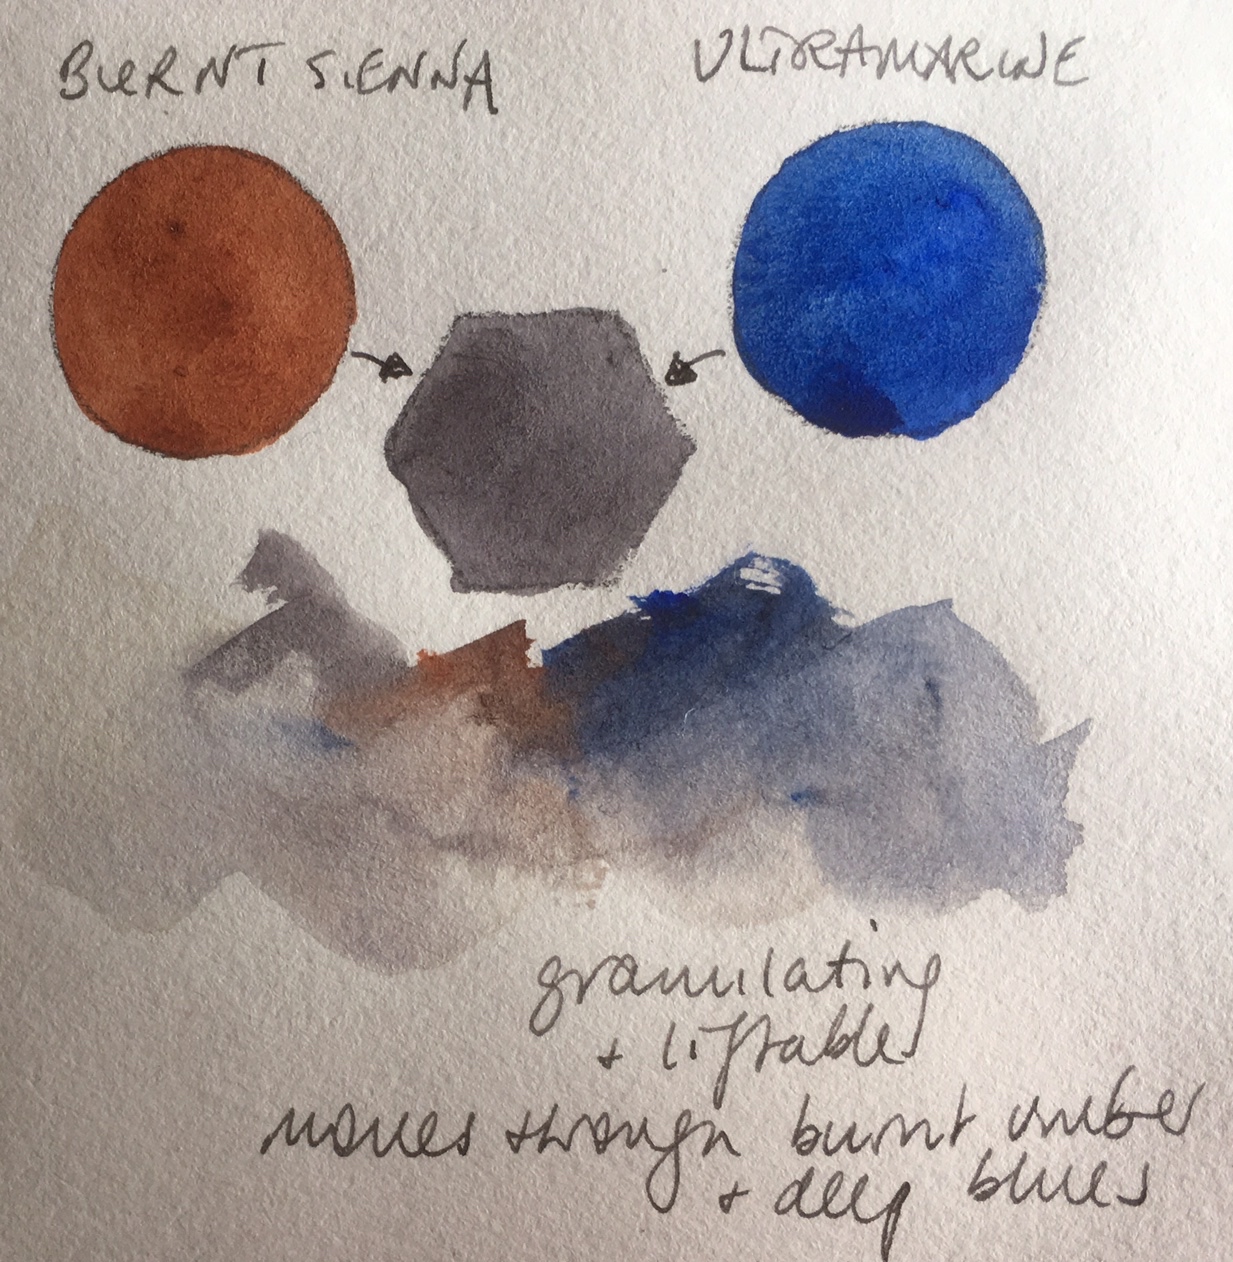 BURNT SIENNA
ULTRAMARINE
granulating
+ liftable
moves through burnt umber
+ deep blues